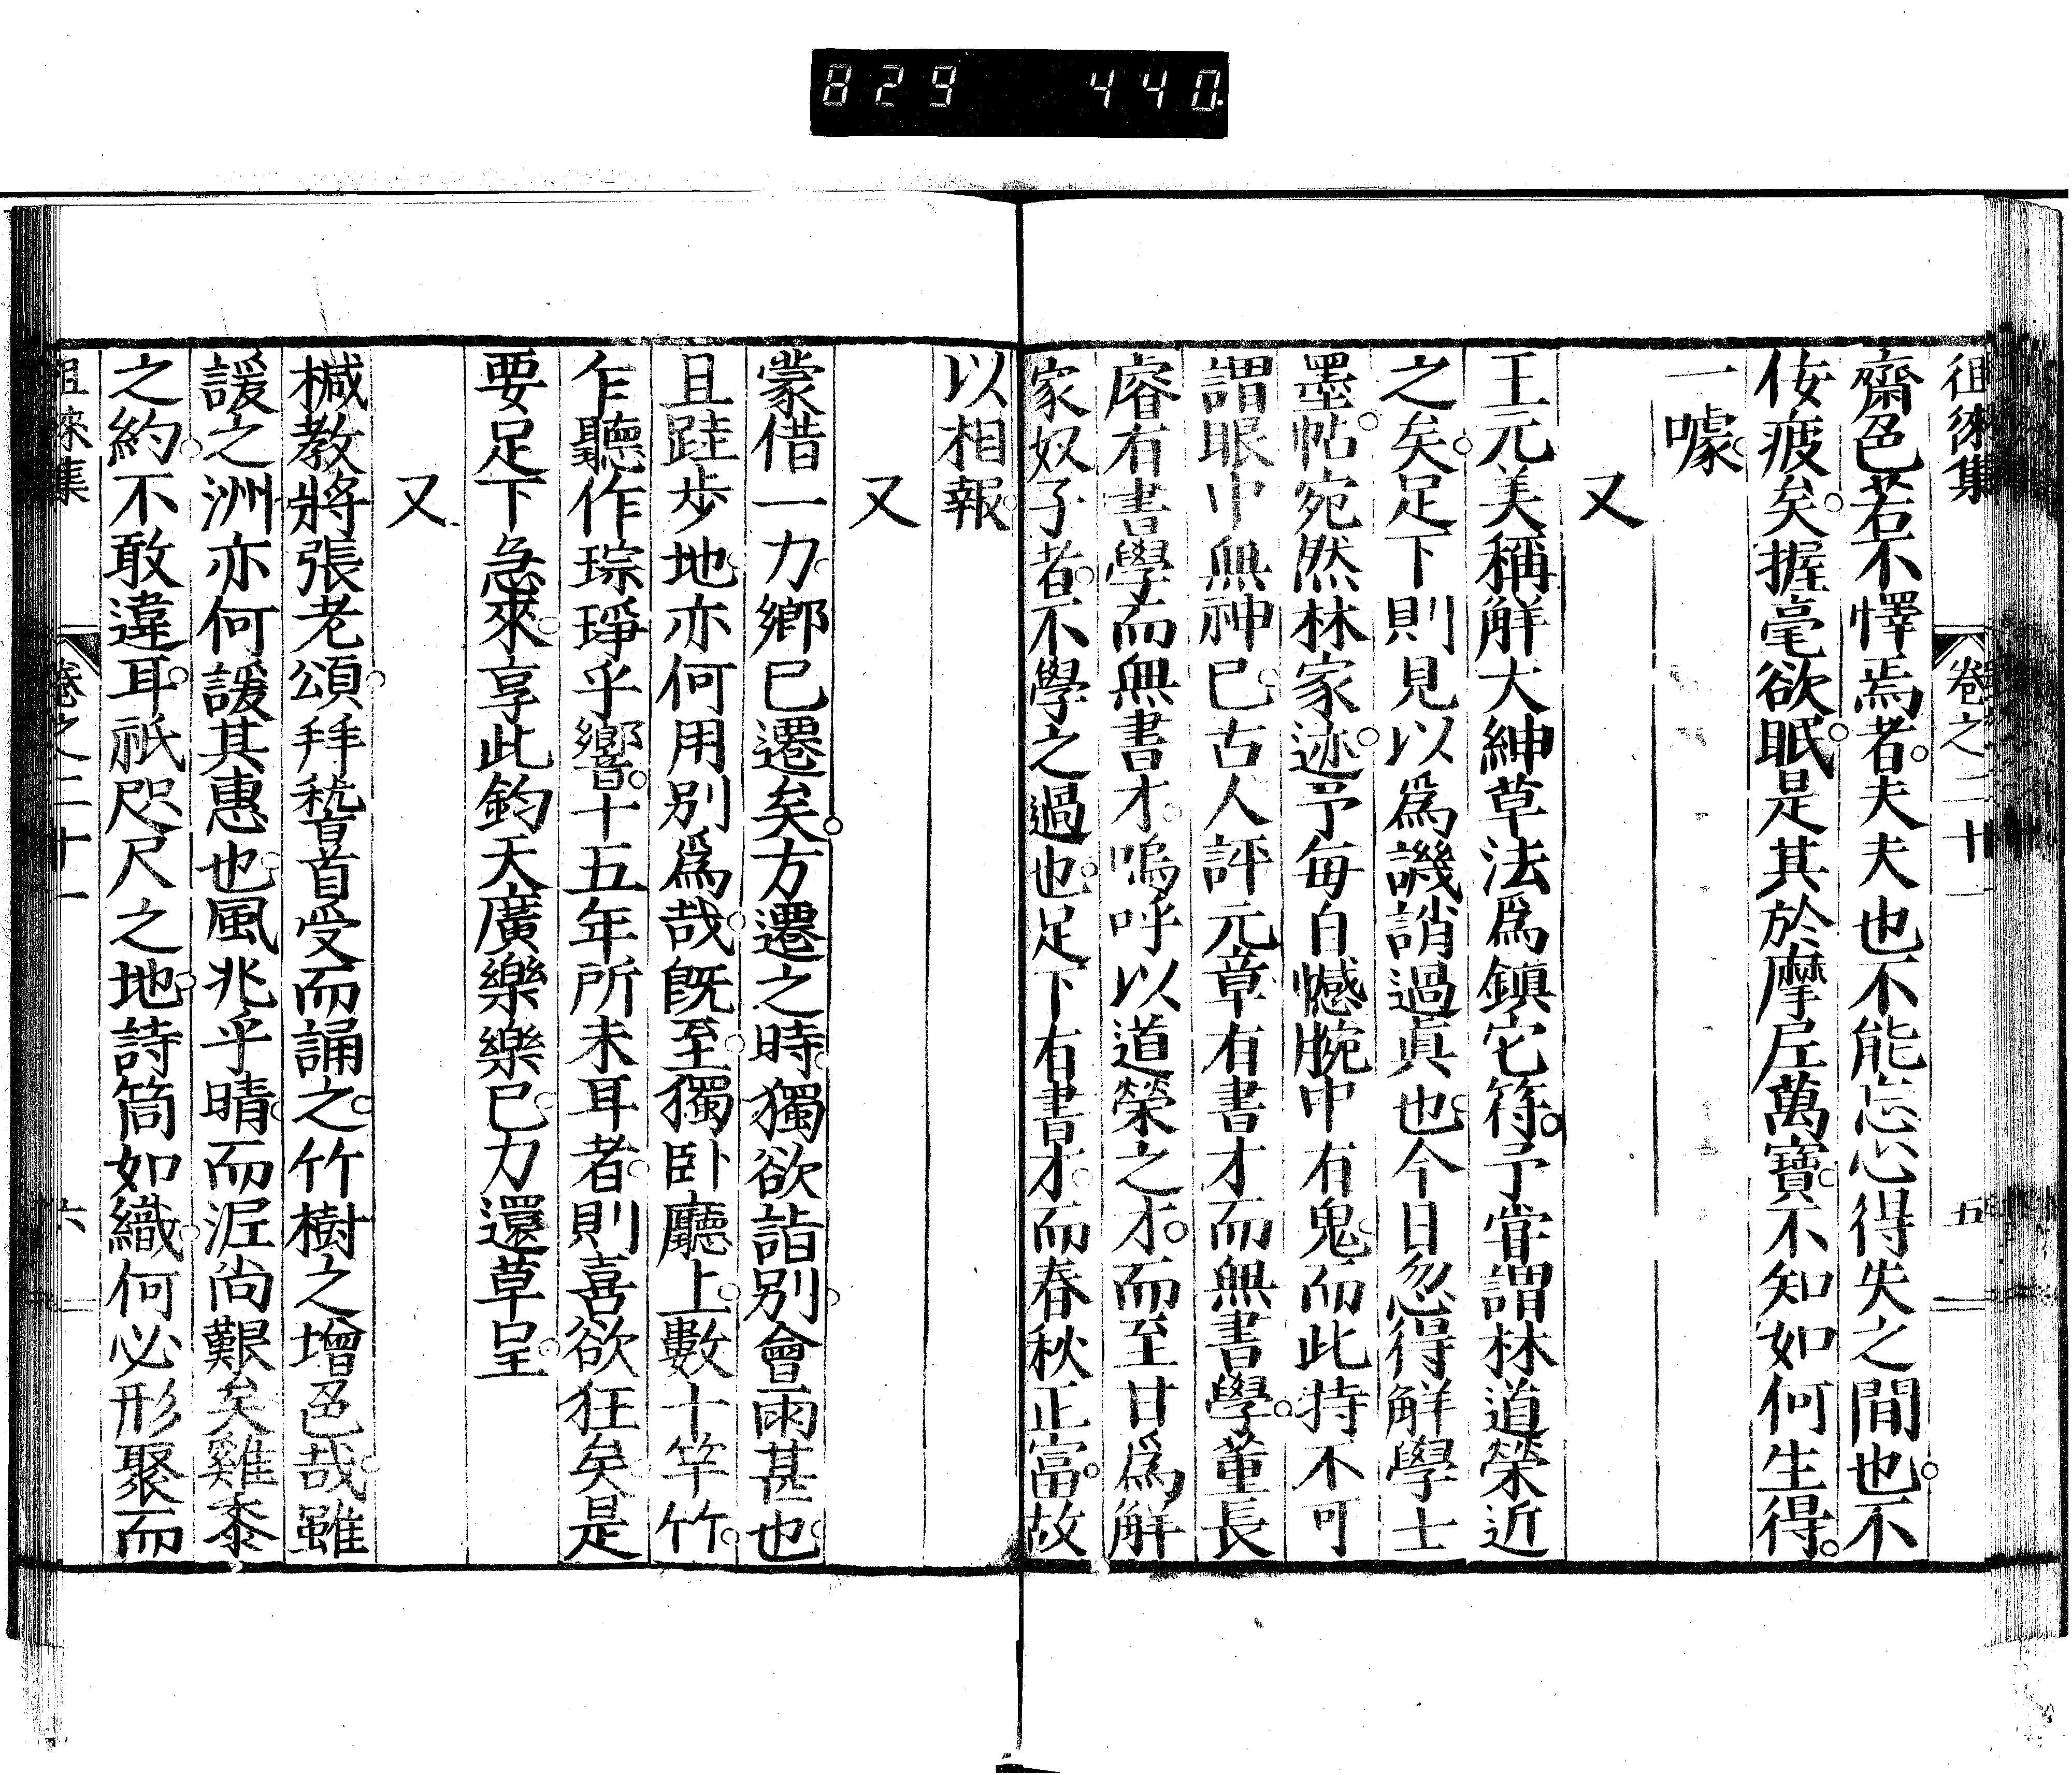 829 440.
徂徠集 卷之二十一 五
齋色若不懌焉者。夫夫也不能忘心得失之間也。不
佞疲矣。握毫欲眠。是其於摩尼萬寶。不知如何生得。
一噱。
又
王元美稱解大紳草法爲鎮宅符。予甞謂林道榮近
之矣。足下則見以爲譏誚過眞也。今日忽得解學士
墨帖。宛然林家迹。予每自憾腕中有鬼。而此持不可
謂眼中無神已。古人評元章有書才而無書學。董長
睿有書學而無書才。嗚呼以道榮之才。而至甘爲解
家奴子者。不學之過也。足下有書才。而春秋正富。故
以相報。
又
蒙借一力。鄉已遷矣。方遷之時。獨欲詣別。會雨甚也。
且跬步地。亦何用別爲哉。旣至。獨臥廳上。數十竿竹。
乍聽作琮琤乎響。十五年所未耳者。則喜欲狂矣。是
要足下急來。享此鈞天廣樂樂已。力還草呈。
又
椷教將張老頌。拜嵇首受而誦之。竹樹之增色哉。雖
諼之洲亦何諼其惠也。風兆乎晴。而泥尚艱矣。雞黍
之約。不敢違耳。祇咫尺之地。詩筒如織。何必形聚而
徂徠集 卷之二十一 六